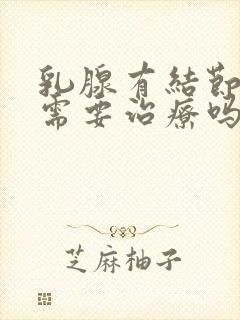 乳腺有結節
需要治療嗎
芝麻柚子